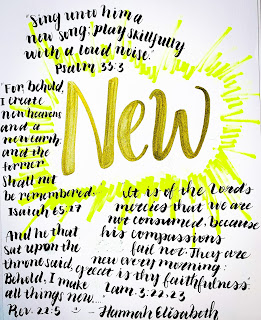 "Sing unto him a
new song; play skillfully
with a loud noise."
Psalm 33:3
"For, behold,
I create
new heavens
and a
new earth:
and the
former
shall not
be remembered,
Isaiah 65:17
New
And he that
sat upon the
throne said,
Behold, I make
all things new....."
Rev. 21:5
It is of the Lords
mercies that we are
not consumed, because
his compassions
fail not. They are
new every morning:
great is thy faithfulness.
Lam. 3:22,23
- Hannah Elisabeth